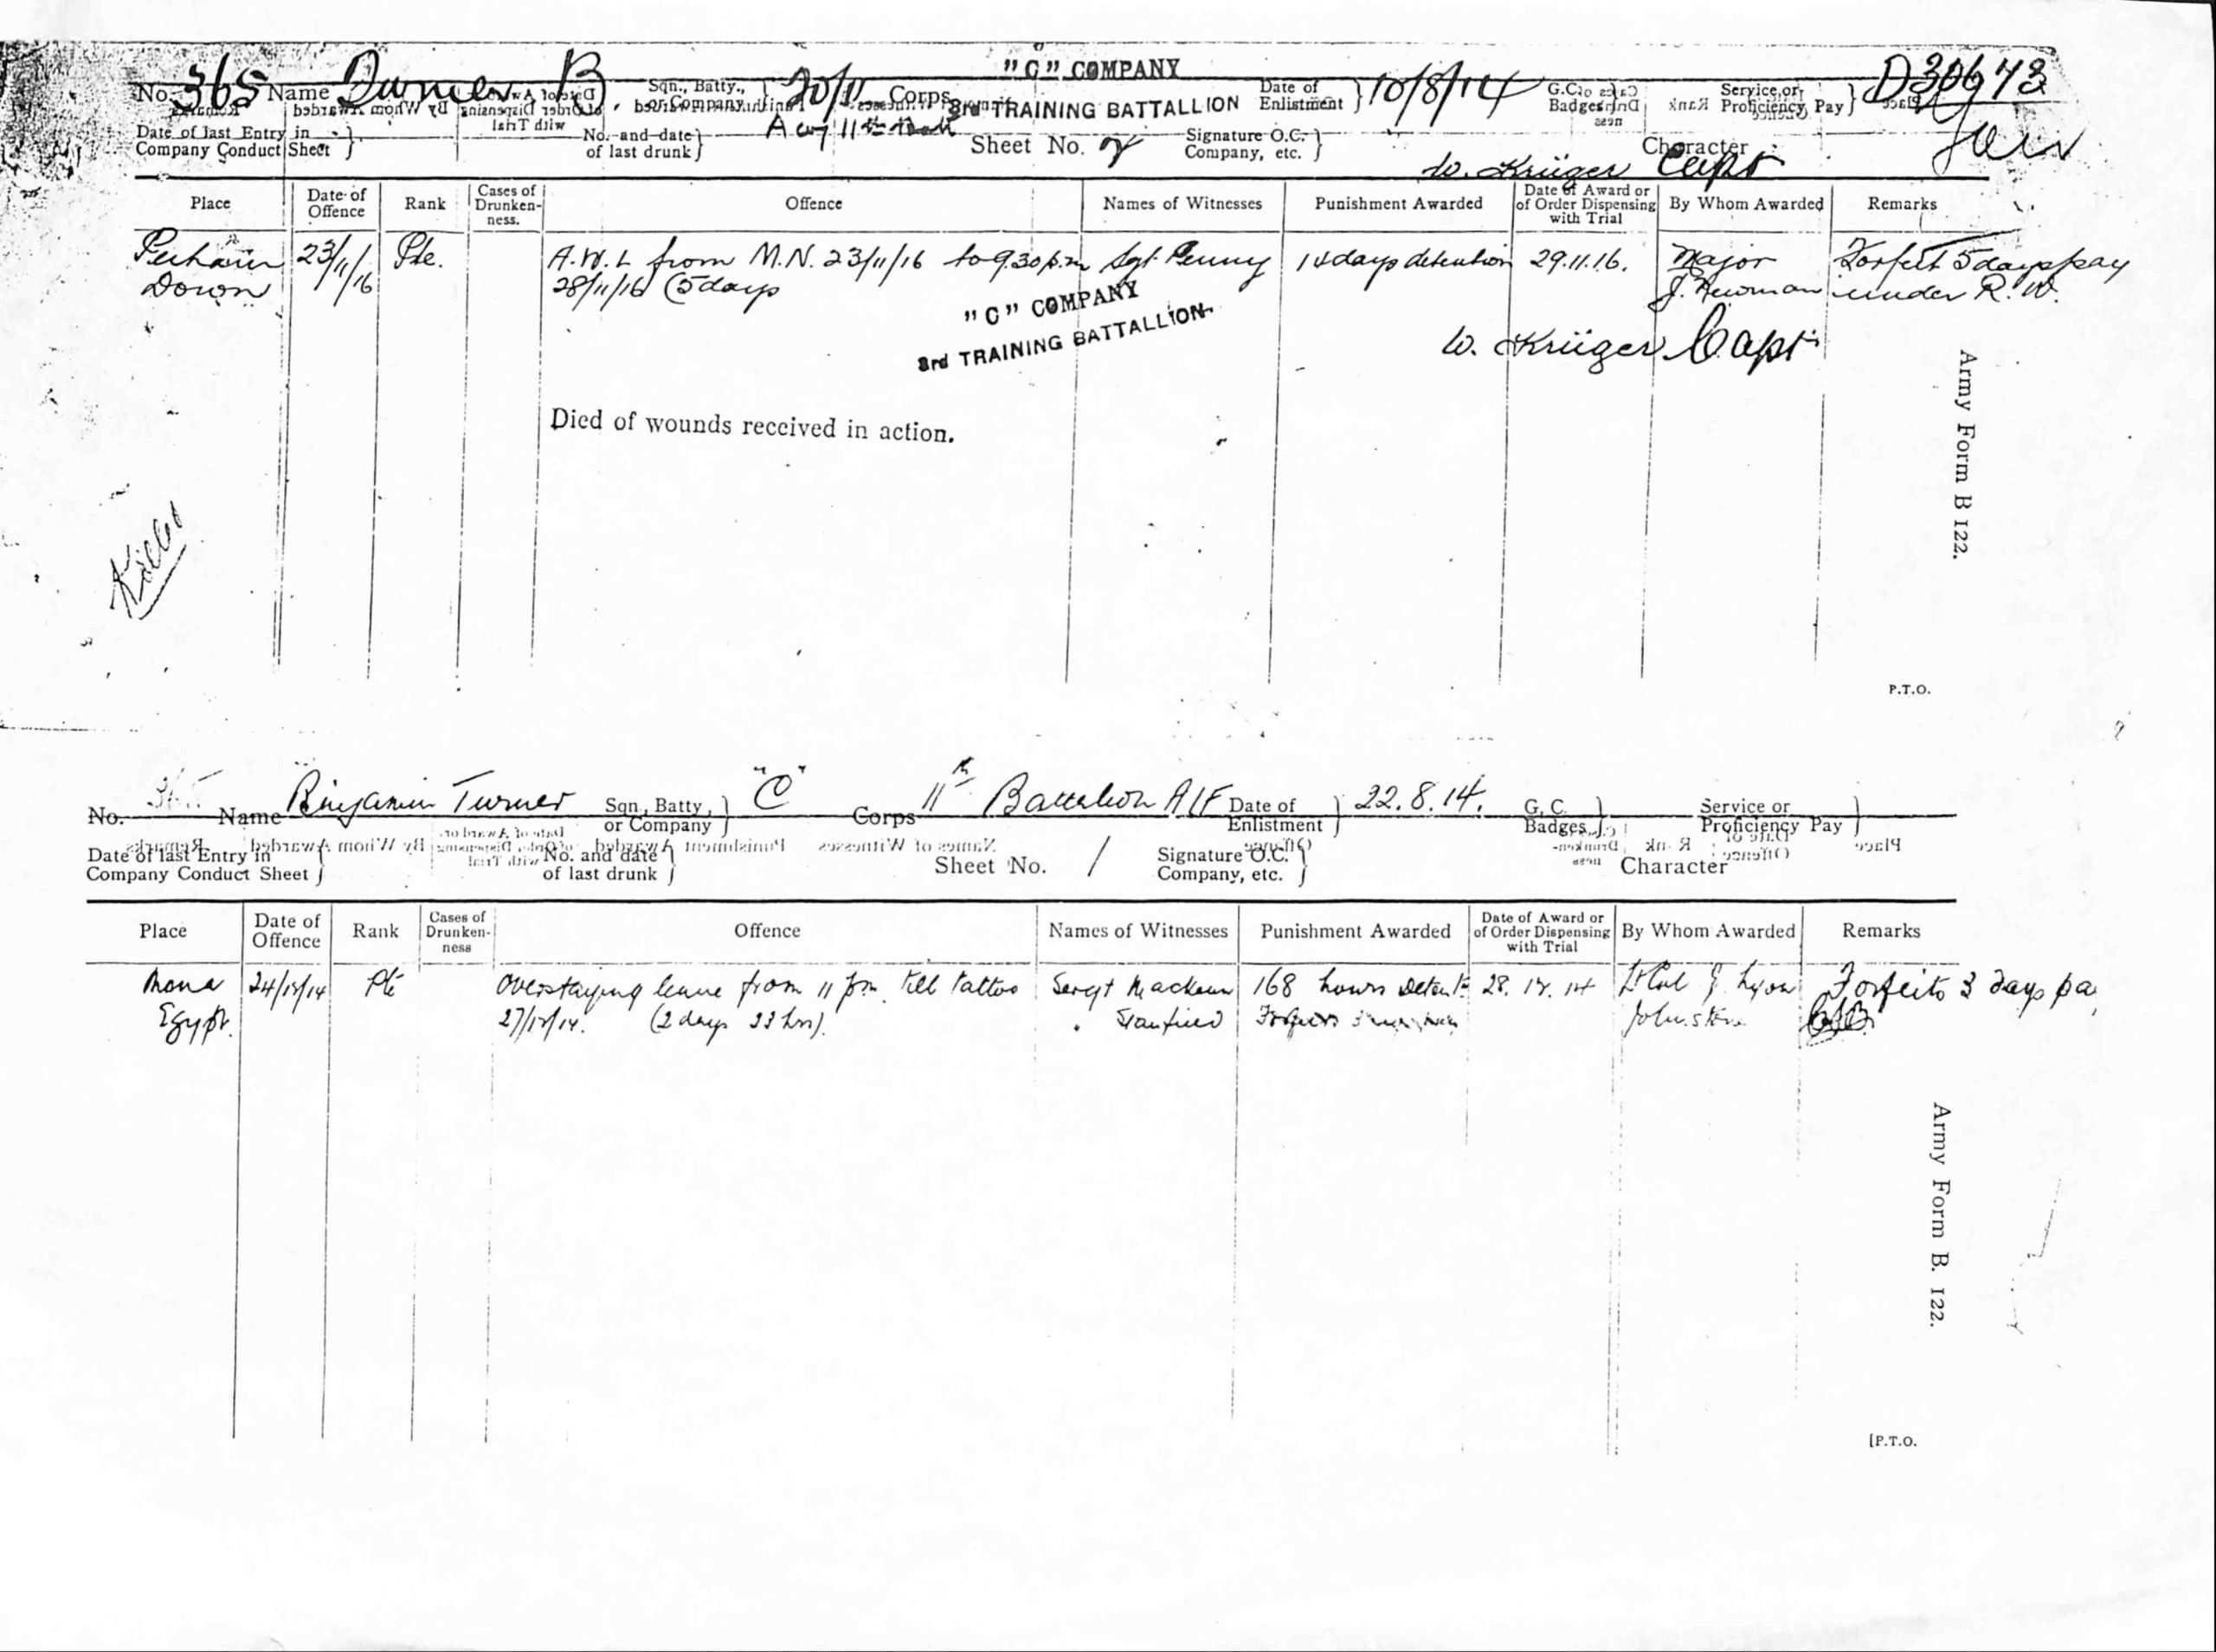 "C" COMPANY
No. 365 Name Turner B Sqn., Batty., or Company Corps 3rd TRAINING BATTALLION Date of Enlistment 10/8/14 G.C. Badges Service or Proficiency Pay D30643
Date of last Entry in Company Conduct Sheet No. and date of last drunk Sheet No. 2 Signature O.C. Company, etc. W. Krüger Capt Character
Place Date of Offence Rank Cases of Drunken-ness. Offence Names of Witnesses Punishment Awarded Date of Award or of Order Dispensing with Trial By Whom Awarded Remarks
Perham 23/11/16 Pte. A.W.L from M.N. 23/11/16 to 9.30 p.m Sgt. Penny 14 days detention 29.11.16. Major Forfeit 5 days pay
Down 28/11/16 (5 days J. Newman under R.W.
"C" COMPANY
3rd TRAINING BATTALLION
W. Krüger Capt
Died of wounds received in action.
Army Form B 122.
Killed
P.T.O.
No. 365 Name Binjamin Turner Sqn., Batty, or Company "C" Corps 11th Battalion AIF Date of Enlistment 22.8.14. G. C. Badges Service or Proficiency Pay
Date of last Entry in Company Conduct Sheet No. and date of last drunk Sheet No. 1 Signature O.C. Company, etc. Character
Place Date of Offence Rank Cases of Drunken-ness Offence Names of Witnesses Punishment Awarded Date of Award or of Order Dispensing with Trial By Whom Awarded Remarks
Mena 24/12/14 Pte Overstaying leave from 11 pm till tattoo Sergt 168 hours Detent. 28.12.14 Lt Col J. Lyon Forfeits 3 days pa
Egypt. 27/12/14. (2 days 23 hrs). Forfeits Johnston
Army Form B. 122.
[P.T.O.